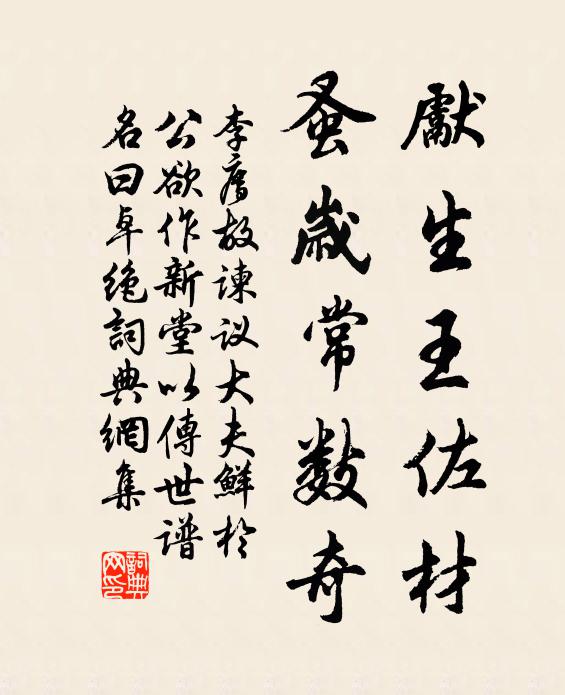 獻生王佐材
蚤歲常數奇
李廌故諫议大夫鮮於
公欲作新堂以傳世谱
名曰卓絶詞典網集
詞典网印